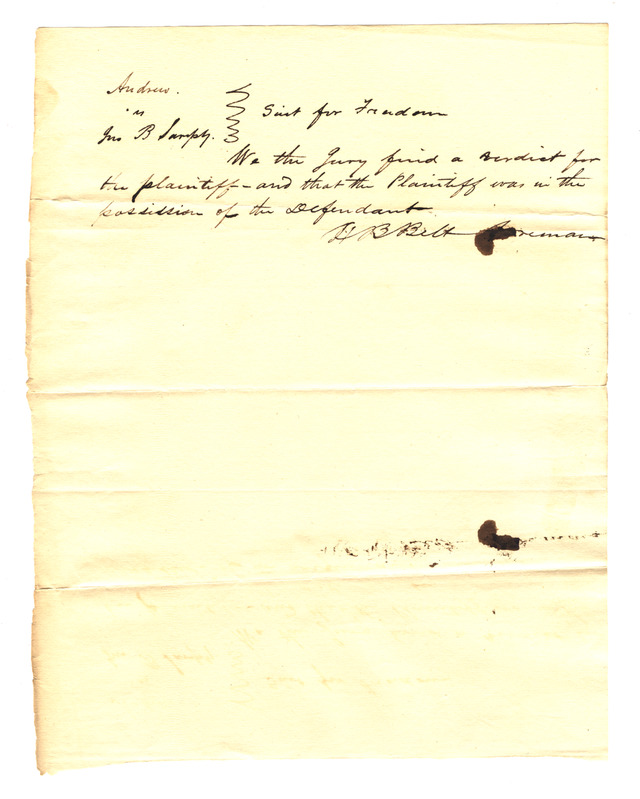 Andrew.
vs
Jno B Sarpy.
Suit for Freedom
We the Jury find a verdict for
the plaintiff - and that the Plaintiff was in the
possession of the Defendant
H B Belt Foreman